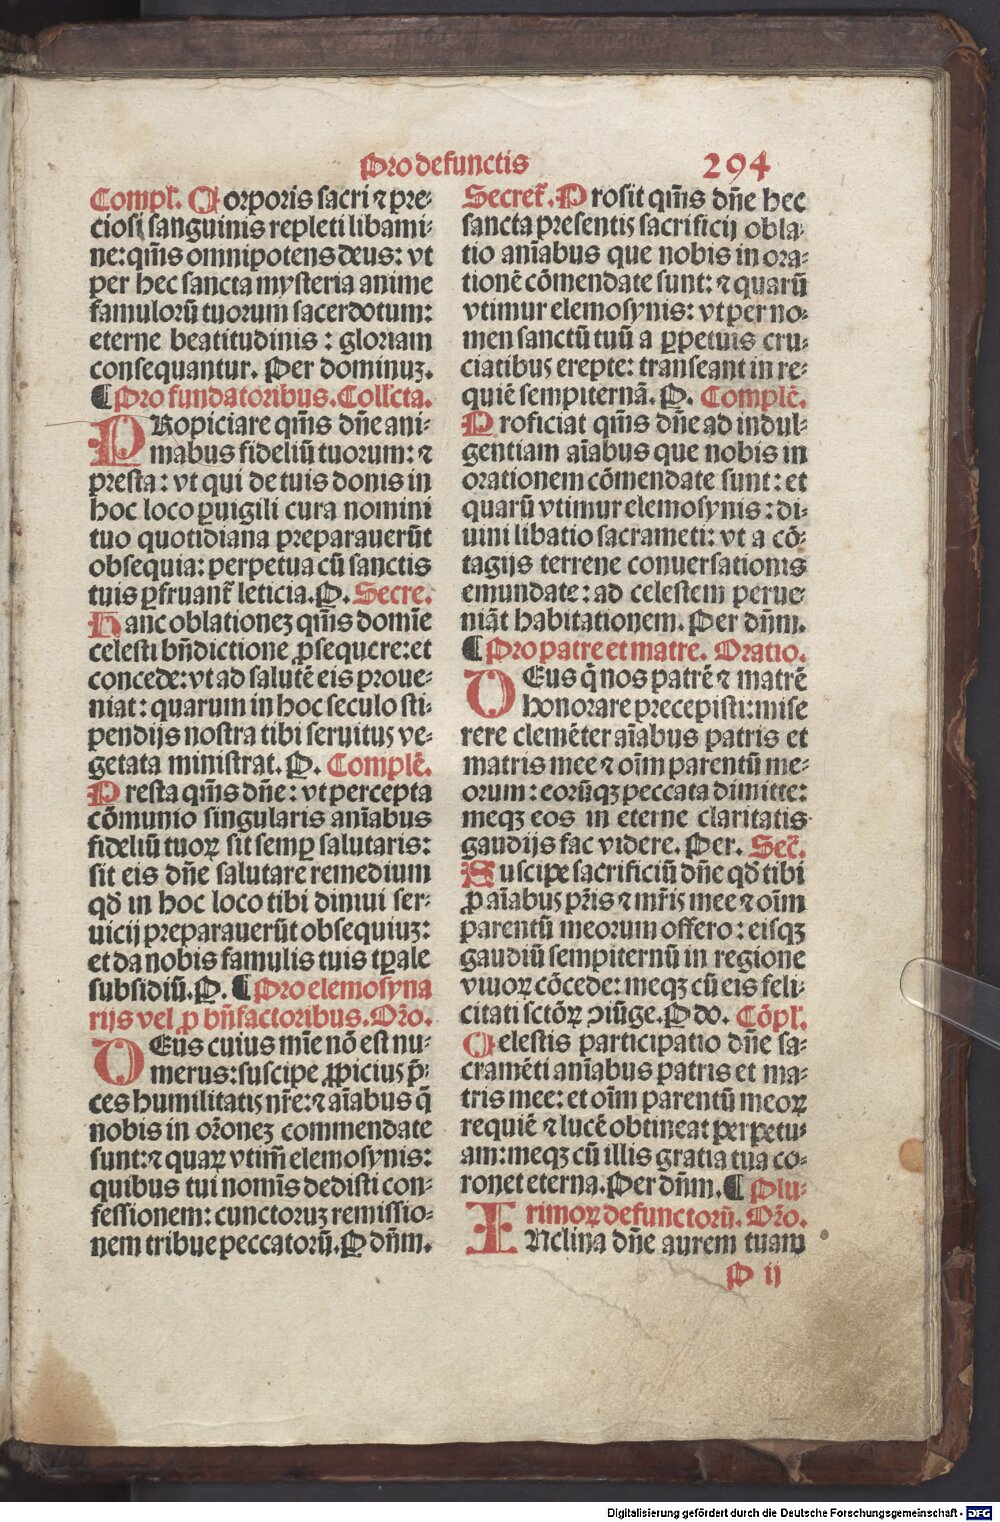 Pro defunctis
294
Compl̃. Corporis sacri ⁊ pre⸗
ciosi sanguinis repleti libami⸗
ne: q̃ms omnipotens deus: vt
per hec sancta mysteria anime
famulorũ tuorum sacerdotum:
eterne beatitudinis : gloriam
consequantur. Per dominuꝫ.
¶ Pro fundatoribus. Coll̃cta.
PRopiciare q̃ms dñe ani⸗
mabus fideliũ tuorum: ⁊
presta: vt qui de tuis donis in
hoc loco ꝑuigili cura nomini
tuo quotidiana preparauerũt
obsequia: perpetua cũ sanctis
tuis ꝑfruant᷑ leticia. P. Secre.
Hanc oblationeꝫ q̃ms domĩe
celesti bñdictione ꝓsequere: et
concede: vt ad salutẽ eis proue⸗
niat: quarum in hoc seculo sti⸗
pendijs nostra tibi seruitus ve⸗
getata ministrat. P. Complẽ.
Presta q̃ms dñe: vt percepta
cõmunio singularis aniãbus
fideliũ tuoꝝ sit semꝑ salutaris:
sit eis dñe salutare remedium
qđ in hoc loco tibi diniui ser⸗
uicij preparauerũt obsequiuꝫ:
et da nobis famulis tuis tꝑale
subsidiũ. P. ¶ Pro elemosyna
rijs vel ꝓ bñfactoribus. Oro.
DEus cuius mĩe nõ est nu⸗
merus: suscipe ꝓpicius p̃⸗
ces humilitatis nr̃e: ⁊ aĩabus q̃
nobis in orõneꝫ commendate
sunt: ⁊ quaꝝ vtim᷑ elemosynis:
quibus tui nomĩs dedisti con⸗
fessionem: cunctoruꝫ remissio⸗
nem tribue peccatorũ. P dñm.
Secret̃. Prosit q̃ms dñe hec
sancta presentis sacrificij obla⸗
tio aniãbus que nobis in ora⸗
tionẽ cõmendate sunt: ⁊ quarũ
vtimur elemosynis: vt per no⸗
men sanctũ tuũ a ꝑpetuis cru⸗
ciatibus erepte: transeant in re⸗
quiẽ sempiternã. P. Complẽ.
Proficiat q̃ms dñe ad indul⸗
gentiam aĩabus que nobis in
orationem cõmendate sunt: et
quarũ vtimur elemosynis: di⸗
uini libatio sacrameti: vt a cõ⸗
tagijs terrene conuersationis
emundate: ad celestem perue
niãt habitationem. Per dñm.
¶ Pro patre et matre. Oratio.
DEus q̃ nos patrẽ ⁊ matrẽ
honorare precepisti: mise
rere clemẽter aĩabus patris et
matris mee ⁊ oĩm parentũ me⸗
orum: eorũqꝫ peccata dimitte:
meqꝫ eos in eterne claritatis
gaudijs fac videre. Per. Sec̃.
Suscipe sacrificiũ dñe qđ tibi
ꝓ aĩabus pr̃is ⁊ mr̃is mee ⁊ oĩm
parentũ meorum offero: eisqꝫ
gaudiũ sempiternũ in regione
viuoꝝ cõcede: meqꝫ cũ eis feli⸗
citati sctõꝝ ↄiũge. P do. Cõpl̃.
Celestis participatio dñe sa⸗
cramẽti aniãbus patris et ma⸗
tris mee: et oĩm parentũ meoꝝ
requiẽ ⁊ lucẽ obtineat perpetu⸗
am: meqꝫ cũ illis gratia tua co⸗
ronet eterna. Per dñm. ¶ Plu⸗
rimoꝝ defunctorũ. Oro.
INclina dñe aurem tuam
P ij
Digitalisierung gefördert durch die Deutsche Forschungsgemeinschaft - DFG